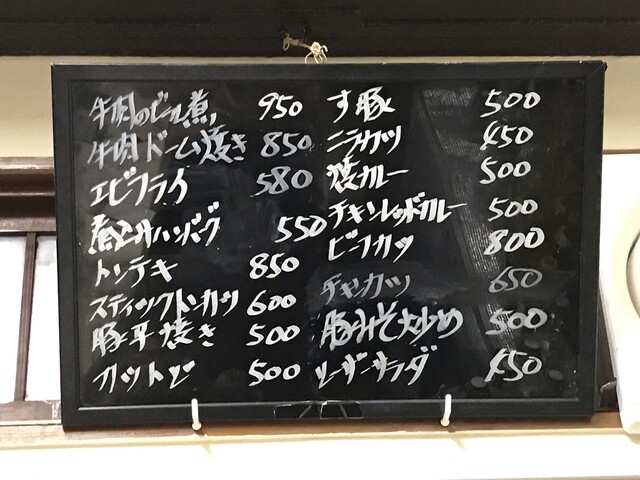 牛肉のビール煮 950
牛肉ドーム焼き 850
エビフライ 580
煮込みハンバーグ 550
トンテキ 850
スティックトンカツ 600
豚平焼き 500
カットピ 500
す豚 500
ニラカツ 450
焼カレー 500
チキンレッドカレー 500
ビーフカツ 800
チキンカツ 650
豚みそ炒め 500
シーザーサラダ 450